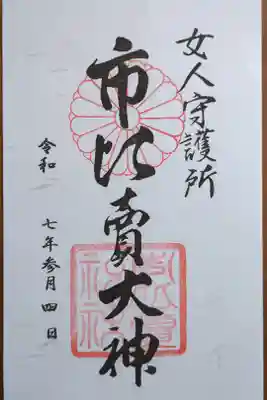 女人守護所
市比賣大神
令和 七年参月四日